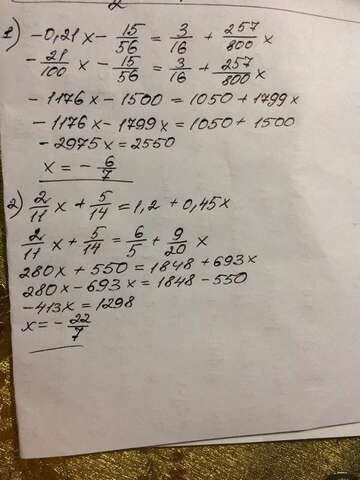 1) -0,21x - 15/56 = 3/16 + 257/800 x
-21/100 x - 15/56 = 3/16 + 257/800 x
-1176x - 1500 = 1050 + 1799x
-1176x - 1799x = 1050 + 1500
-2975x = 2550
x = -6/7
2) 2/11 x + 5/14 = 1,2 + 0,45x
2/11 x + 5/14 = 6/5 + 9/20 x
280x + 550 = 1848 + 693x
280x - 693x = 1848 - 550
-413x = 1298
x = -22/7